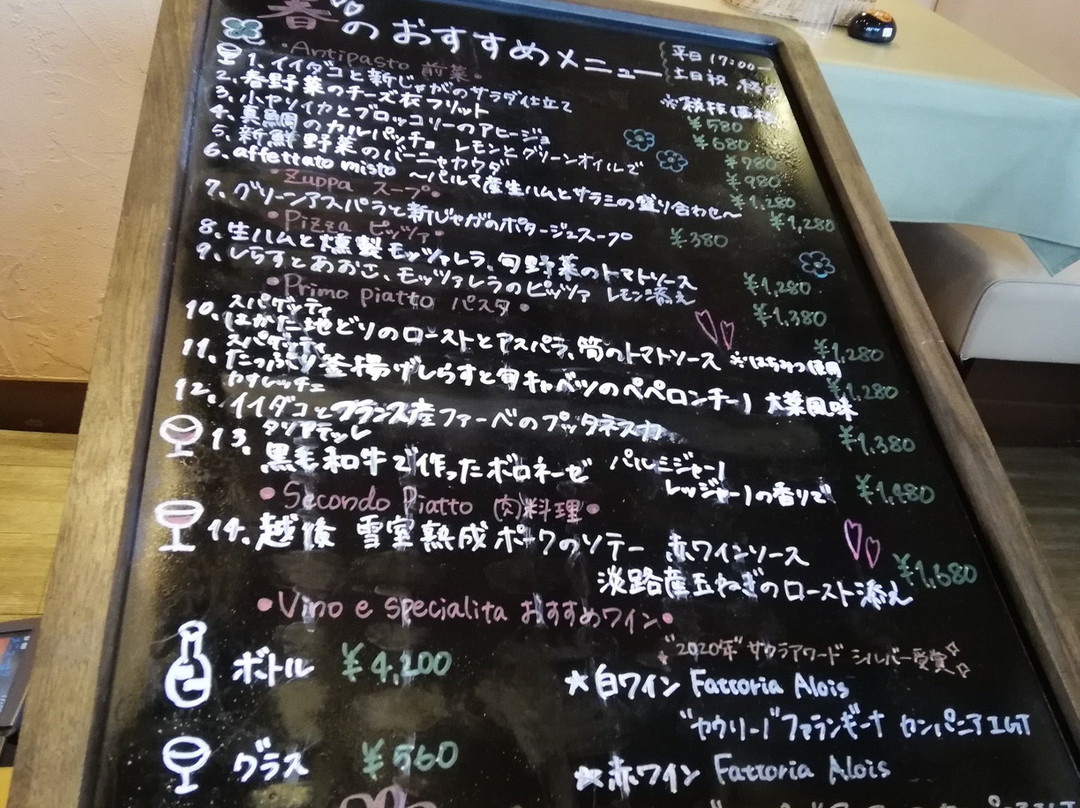 春のおすすめメニュー
平日 17:00〜
土日祝 終日
※税抜価格
•Antipasto 前菜•
1. イイダコと新じゃがのサラダ仕立て ¥580
2. 春野菜のチーズ衣フリット ¥680
3. 小ヤリイカとブロッコリーのアヒージョ ¥780
4. 真鯛のカルパッチョ レモンとグリーンオイルで ¥980
5. 新鮮野菜のバーニャカウダ ¥1,280
6. affettato misto 〜パルマ産生ハムとサラミの盛り合わせ〜 ¥1,280
•Zuppa スープ•
7. グリーンアスパラと新じゃがのポタージュスープ ¥380
•Pizza ピッツァ•
8. 生ハムと燻製モッツァレラ、旬野菜のトマトソース ¥1,280
9. しらすとあおさ、モッツァレラのピッツァ レモン添え ¥1,380
•Primo piatto パスタ•
スパゲッティ
10. はかた地どりのローストとアスパラ、筍のトマトソース ※はちみつ使用 ¥1,280
スパゲッティ
11. たっぷり釜揚げしらすと旬キャベツのペペロンチーノ 大葉風味 ¥1,280
カサレッチェ
12. イイダコとフランス産ファーベのプッタネスカ ¥1,380
タリアテッレ
13. 黒毛和牛で作ったボロネーゼ パルミジャーノ
レッジャーノの香りで ¥1,480
•Secondo Piatto (肉)料理•
14. 越後 雪室熟成ポークのソテー 赤ワインソース
淡路産玉ねぎのロースト添え ¥1,680
•Vino e specialita おすすめワイン•
"2020年"サクラアワード シルバー受賞
ボトル ¥4,200
★白ワイン Fattoria Alois
"カウリーノ"ファランギーナ カンパニアIGT
グラス ¥560
★赤ワイン Fattoria Alois